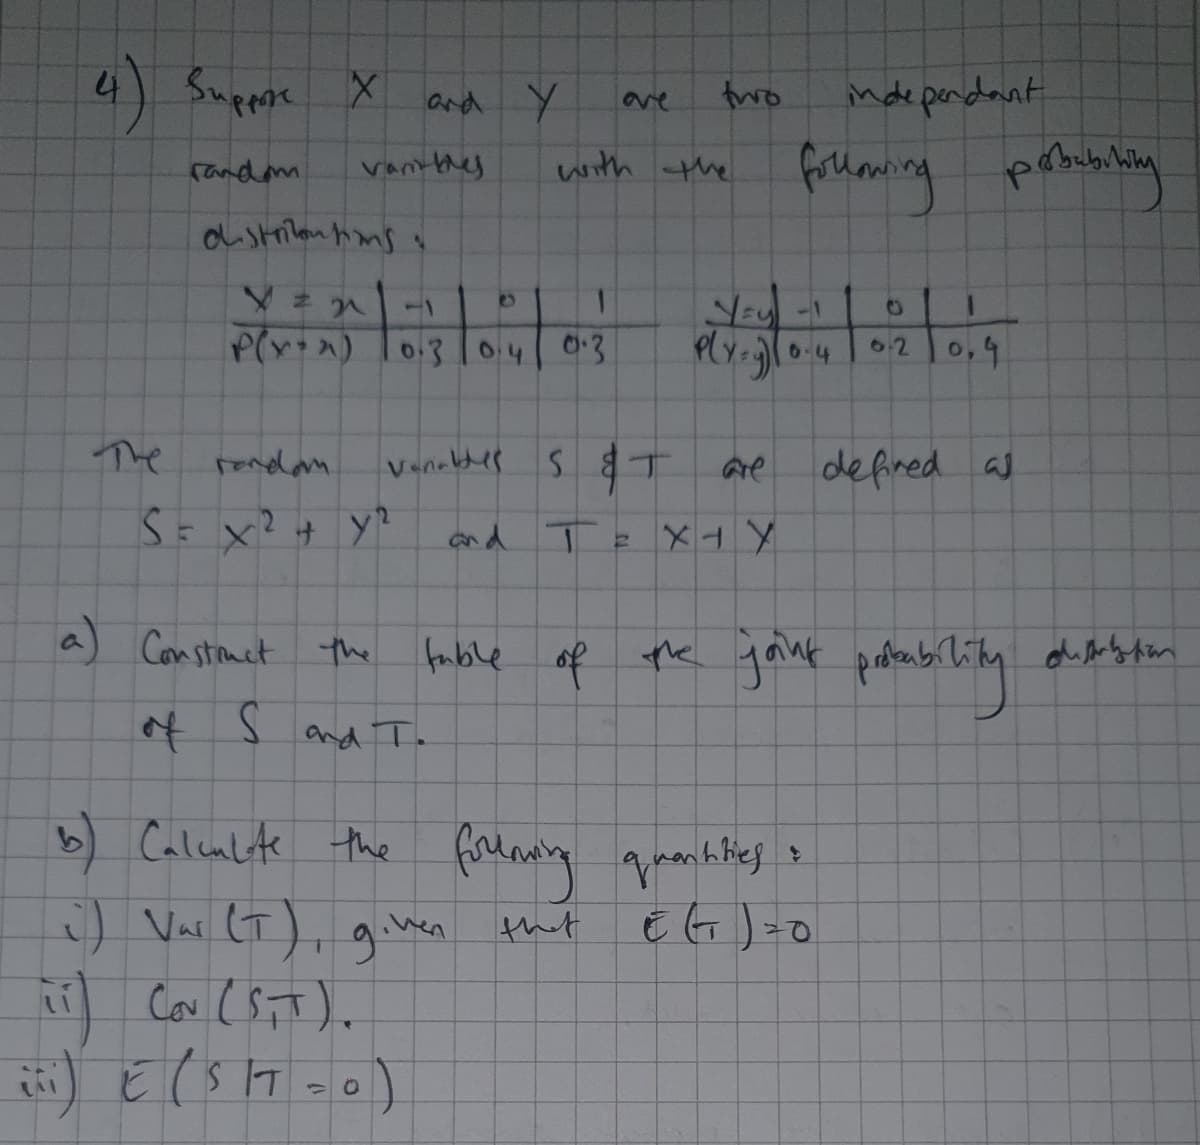 4) Suppose X and Y are two independant
random variables with the following probability
distributions:
X = x | -1 | 0 | 1 Y=y | -1 | 0 | 1
P(X=x) | 0.3 | 0.4 | 0.3 P(Y=y) | 0.4 | 0.2 | 0.4
The random variables S & T are defined as
S = X² + Y² and T = X + Y
a) Construct the table of the joint probability distribution
of S and T.
b) Calculate the following quantities:
i) Var (T), given that E(T)=0
ii) Cov (S,T).
iii) E(S|T=0)